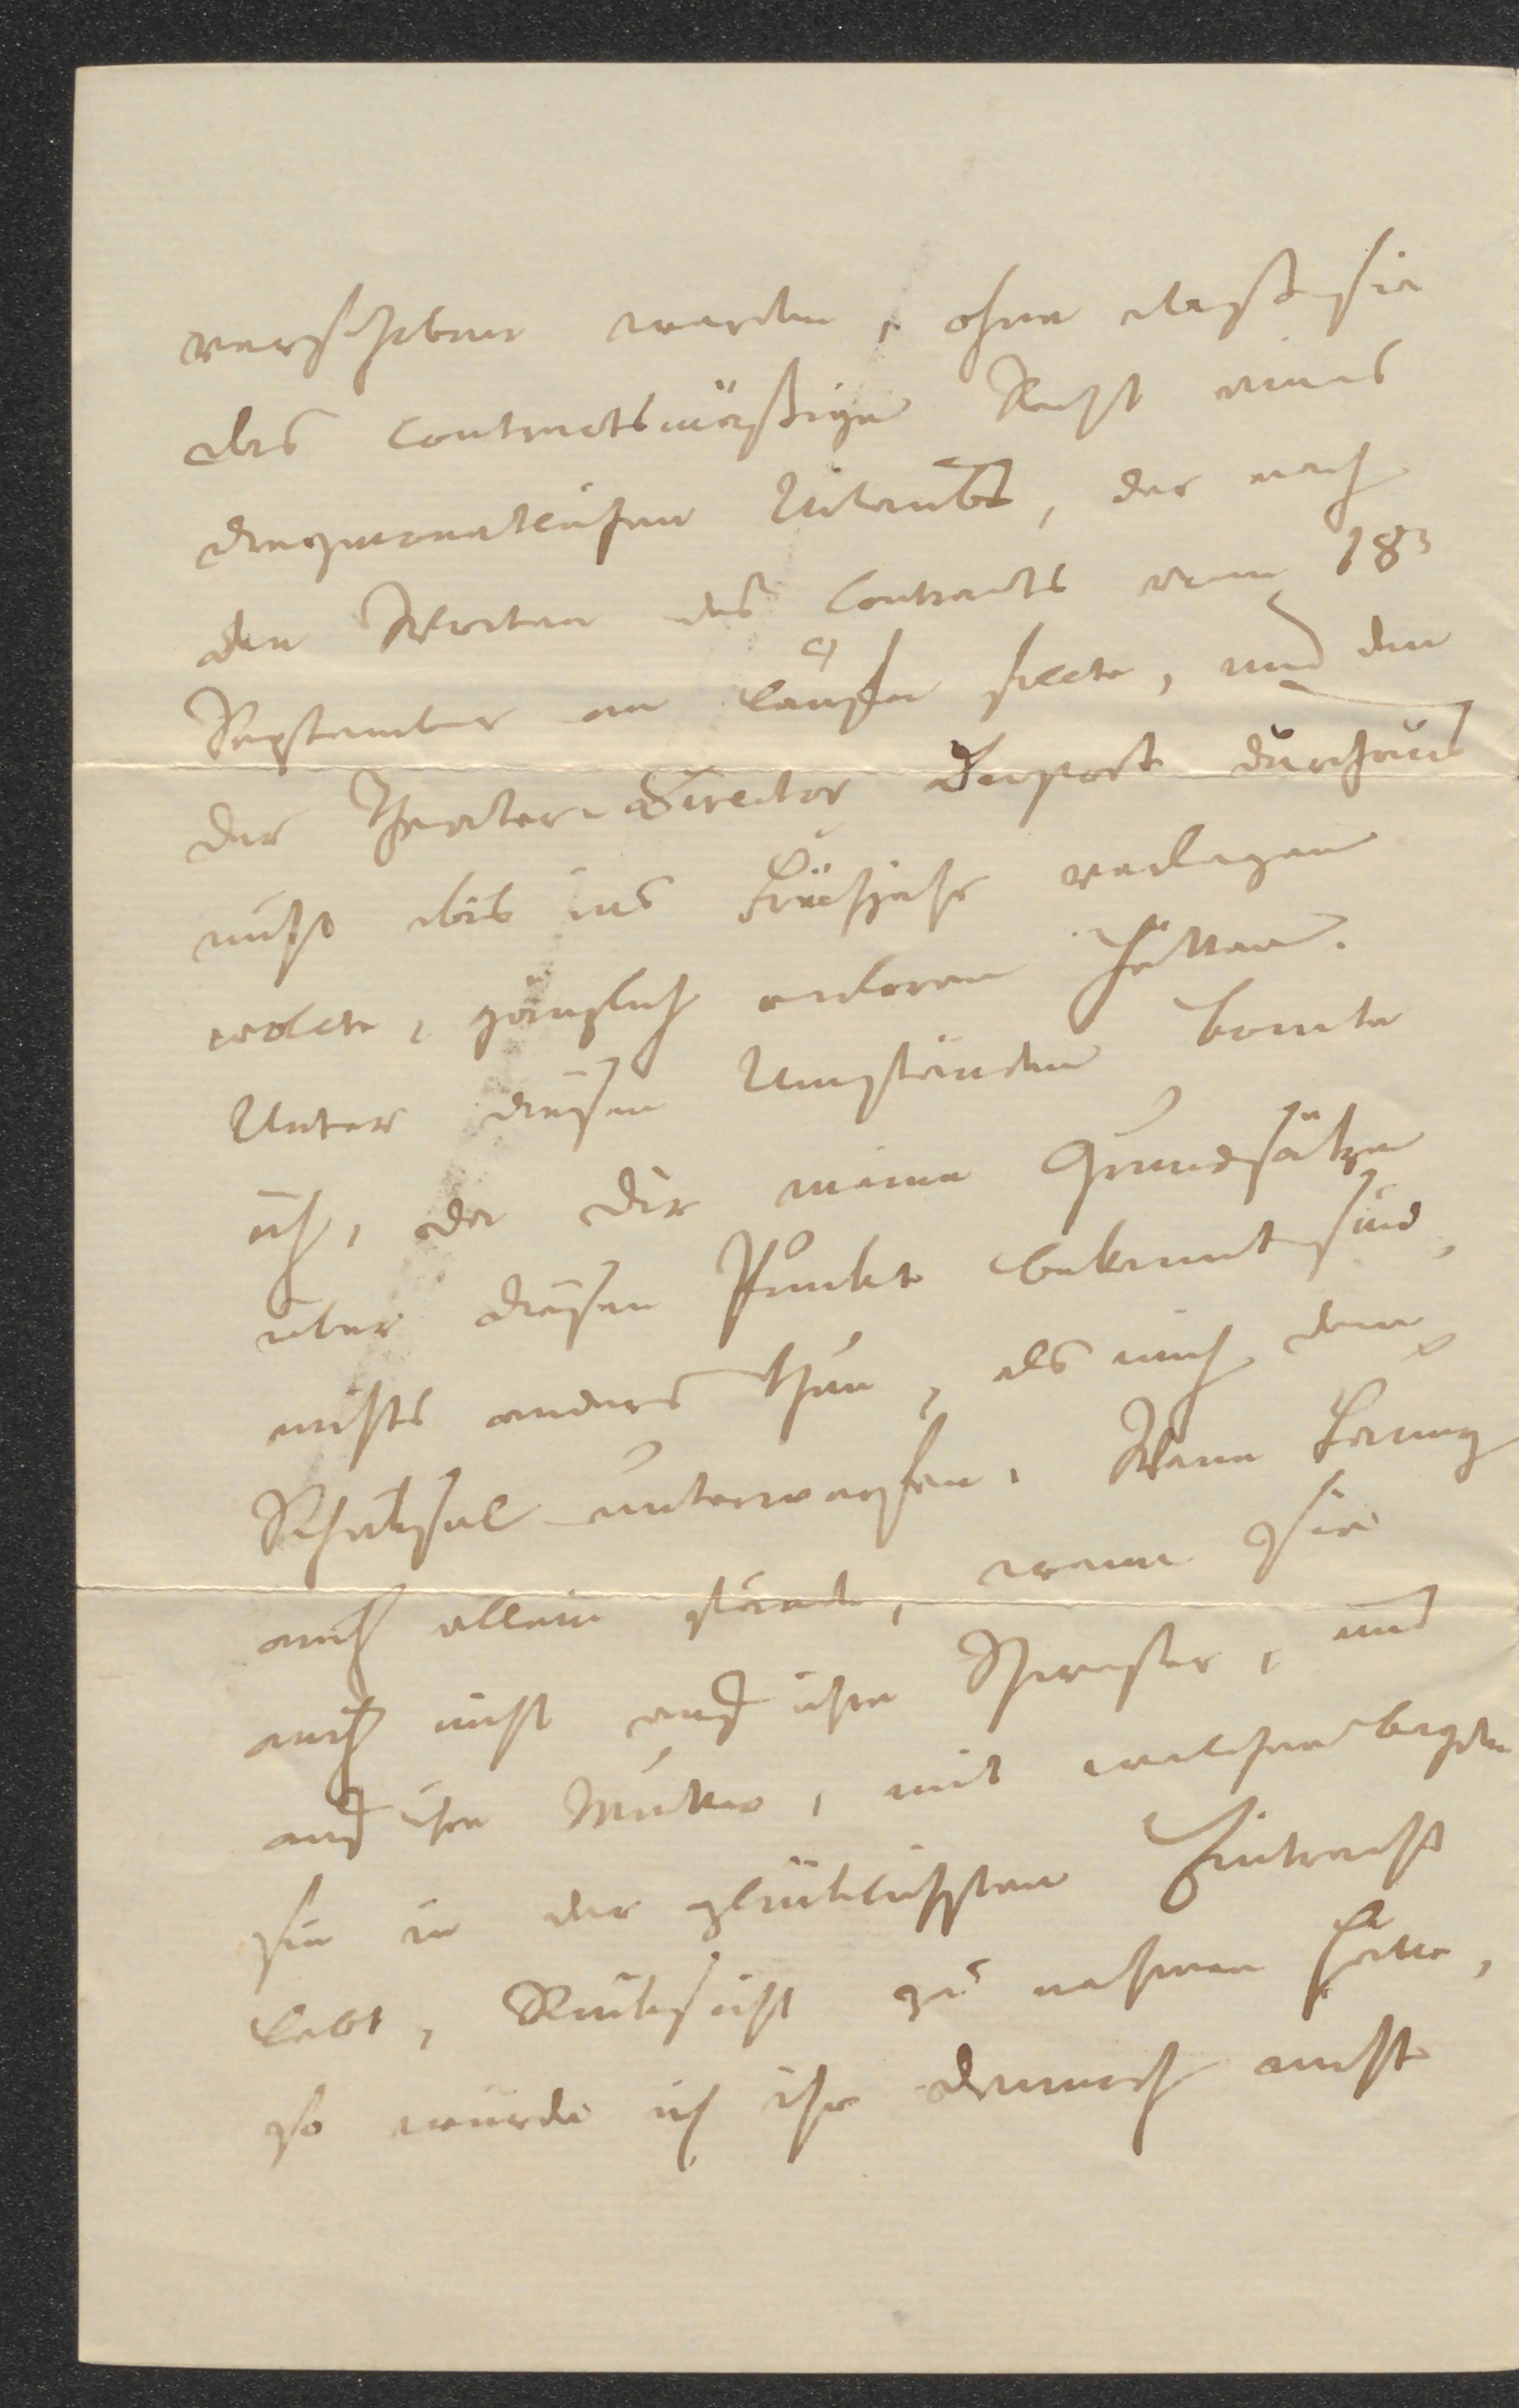 verschoben werden, ohne daß sie
das contractsmäßige Recht eines
dreymonatlichen Urlaubs, der nach
den Worten des Contracts vom 183
September an laufen sollte, und den
der Theater-Director Duport durchaus
nicht bis ins Frühjahr verlegen
wollte, gänzlich verloren hätten.
Unter diesen Umständen konnte
ich, da Dir meine Grundsätze
über diesen Punkt bekannt sind,
nichts anders thun, als mich dem
Schicksal unterwerfen. Wenn Fanny
auch allein stände, wenn sie
auch nicht auf ihre Schwester, und
auf ihre Mutter, mit welchen beyden
sie in der glücklichsten Eintracht
lebt, Rücksicht zu nehmen hätte,
so würde ich ihr dennoch nicht